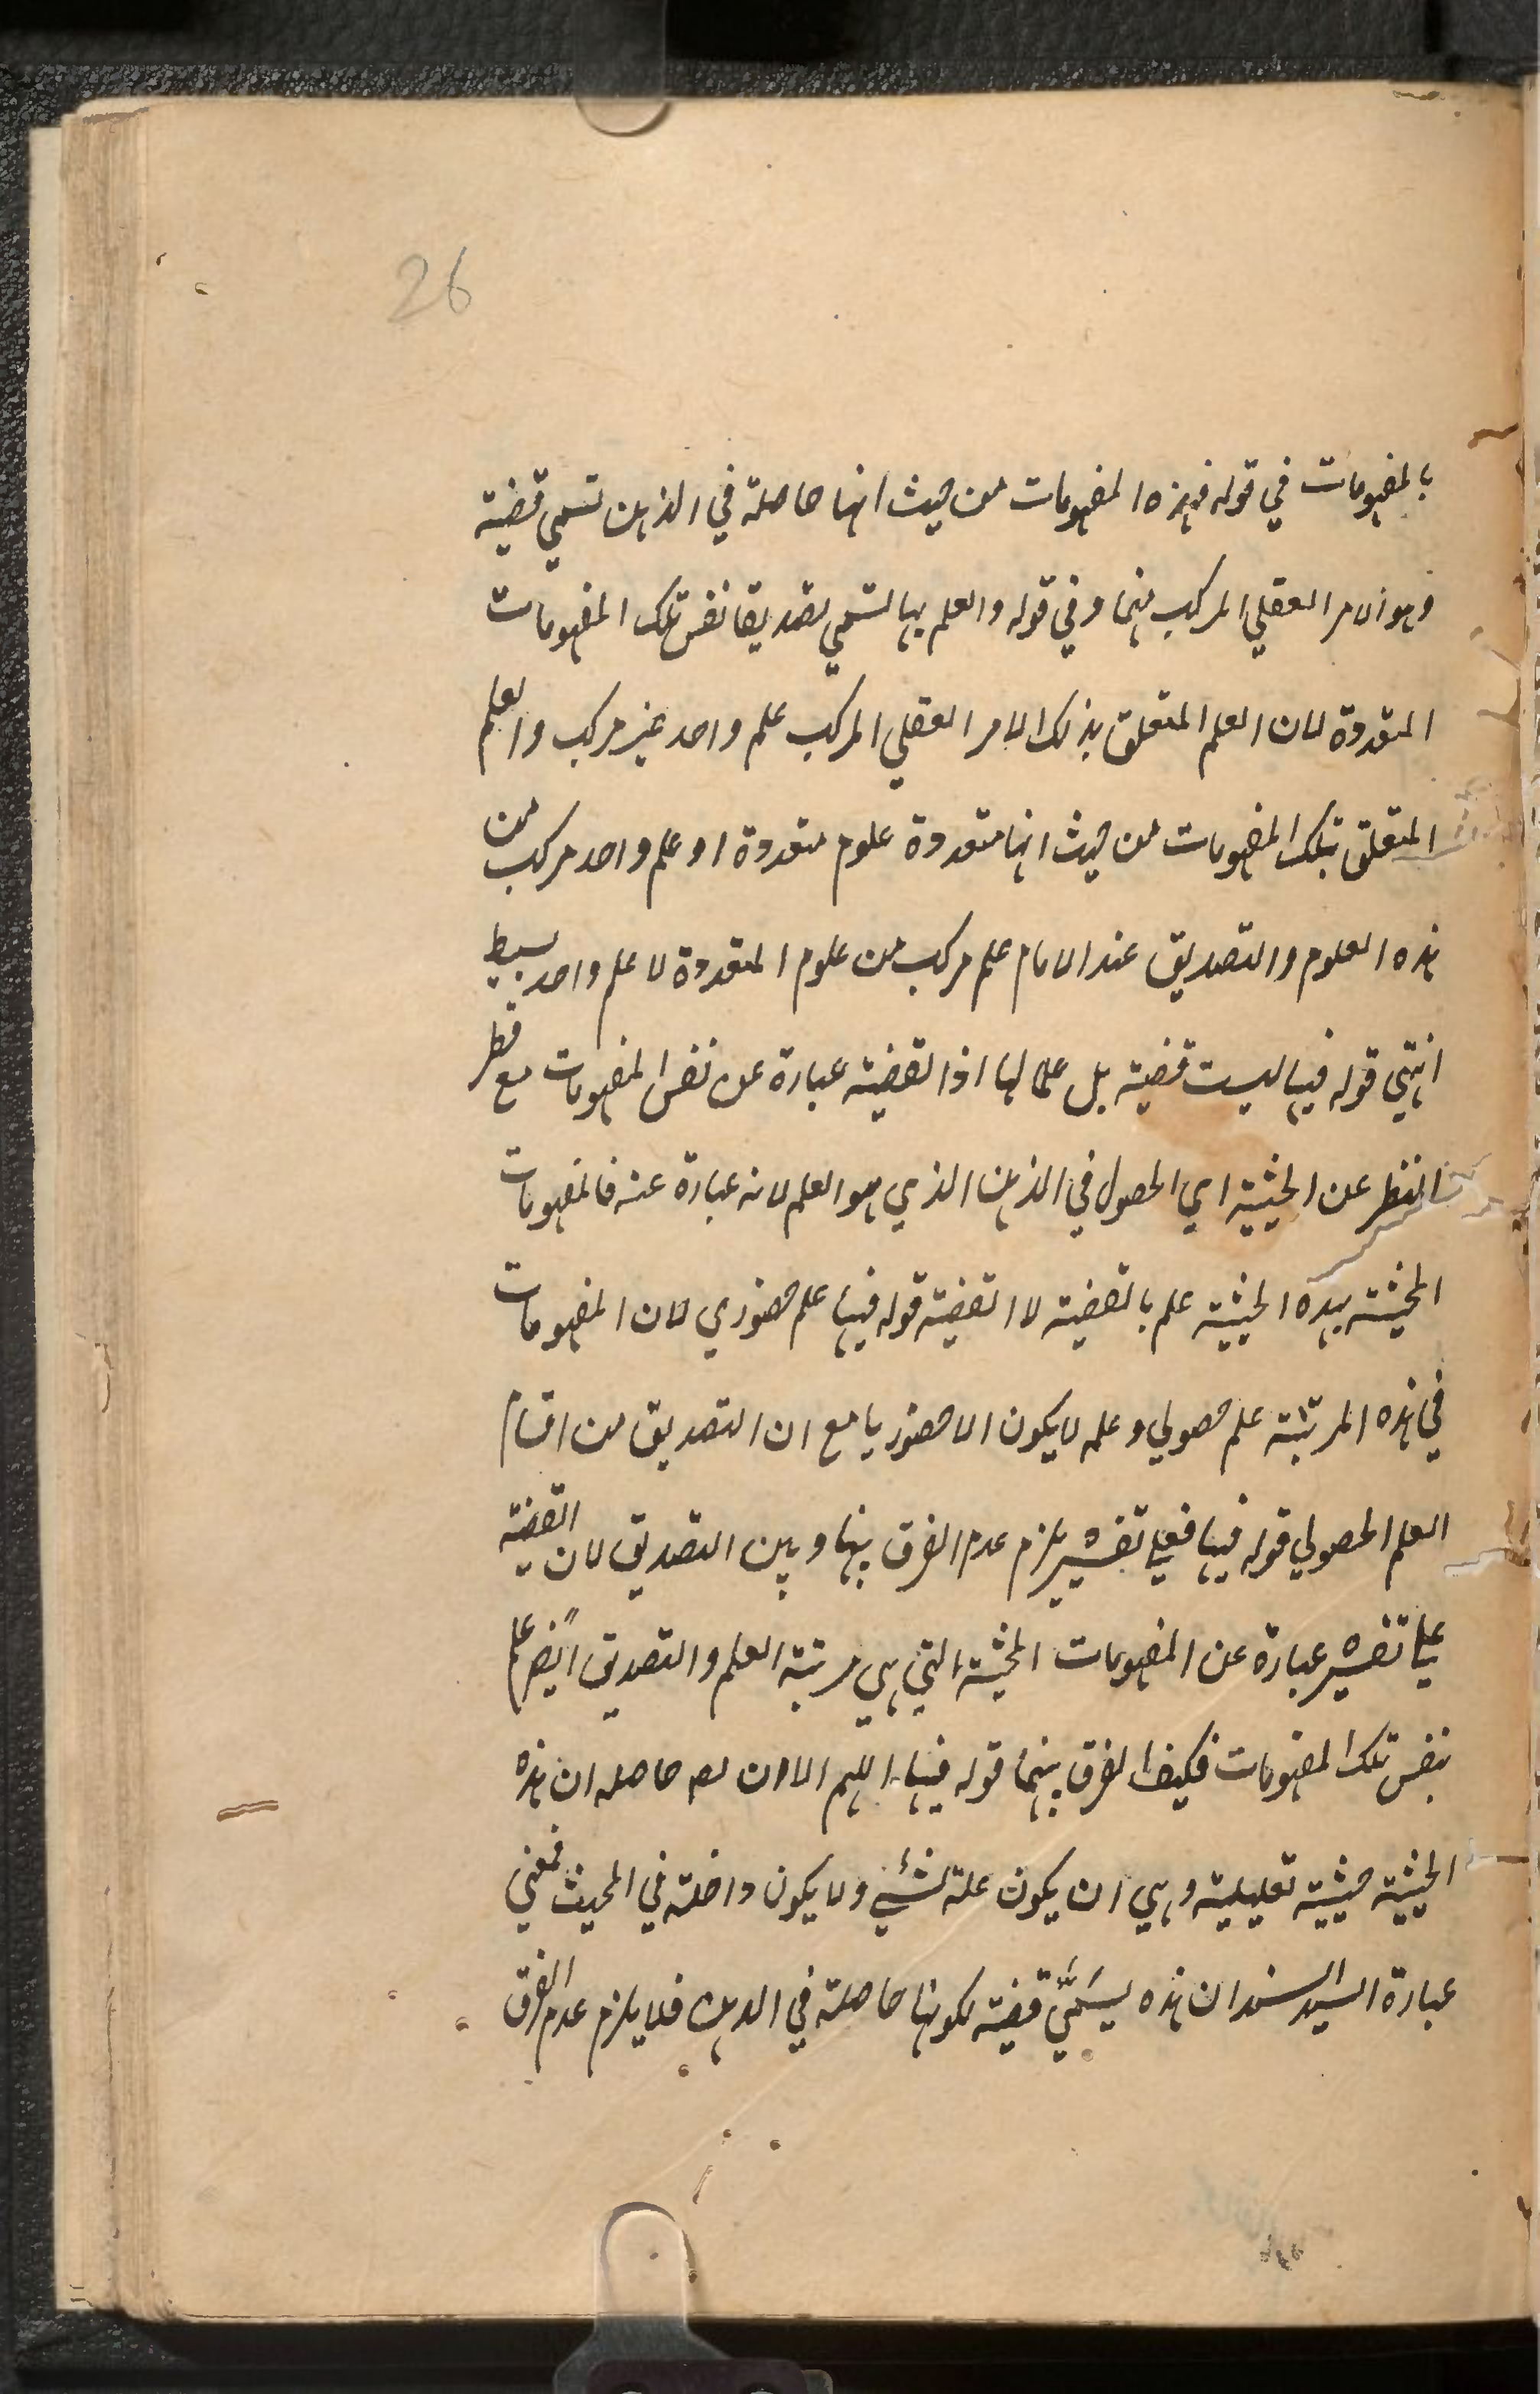 26
بالمفهومات في قوله فهذه المفهومات من حيث انها حاصلة في الذهن تسمي قضية
وهو الامر العقلي المركب منها وفي قوله والعلم بها لتسمي تصديقا نفس تلك المفهومات
المتعددة لان العلم المتعلق بذلك الامر العقلي المركب علم واحد غير مركب والعلم
المتعلق بتلك المفهومات من حيث انها متعددة علوم متعددة او علم واحد مركب من
هذه العلوم والتصديق عند الامام علم مركب من علوم المتعددة لا علم واحد بسيط
انتهي قوله فيها ليست قضية بل علما لها اذ القضية عبارة عن نفس المفهومات مع قطع
النظر عن الحيثية اي الحصول في الذهن الذي هو العلم لانه عبارة عنه فالمفهومات
المحيثة بهذه الحيثية علم بالقضية لا القضية قوله فيها علم حضوري لان المفهومات
في هذه المرتبة علم حصولي وعلمه لا يكون الا حضوريا مع ان التصديق من اقسام
العلم الحصولي قوله فيها فعلي تفسيره يلزم عدم الفرق بينها وبين التصديق لان القضية
علي تفسيره عبارة عن المفهومات المحيثة التي هي مرتبة العلم والتصديق ايضا علم
بنفس تلك المفهومات فكيف الفرق بينهما قوله فيها اللهم الا ان حاصله ان هذه
الحيثية حيثية تعليلية وهي ان يكون علة لشيء ولا يكون داخلة في المحيث فمعني
عبارة السيد السند ان هذه يسمّي قضية لكونها حاصلة في الذهن فلا يلزم عدم الفرق